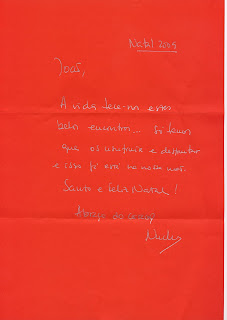 Natal 2005
João,
A vida tece-nos estes
belos encontros... Só temos
que os usufruir e desfrutar
e isso já está na nossa mão.
Santo e Feliz Natal!
Abraço do